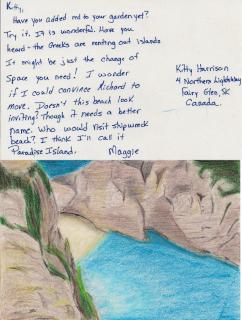 Kitty,
Have you added red to your garden yet?
Try it. It is wonderful. Have you
heard - the Greeks are renting out islands
It might be just the change of
Space you need! I wonder
if I could convince Richard to
move. Doesn't this beach look
inviting? Though it needs a better
name. Who would visit shipwreck
beach? I think I'll call it
Paradise Island. Maggie
Kitty Harrison
4 Northern Lights Way
Fairy Glen, SK
Canada.